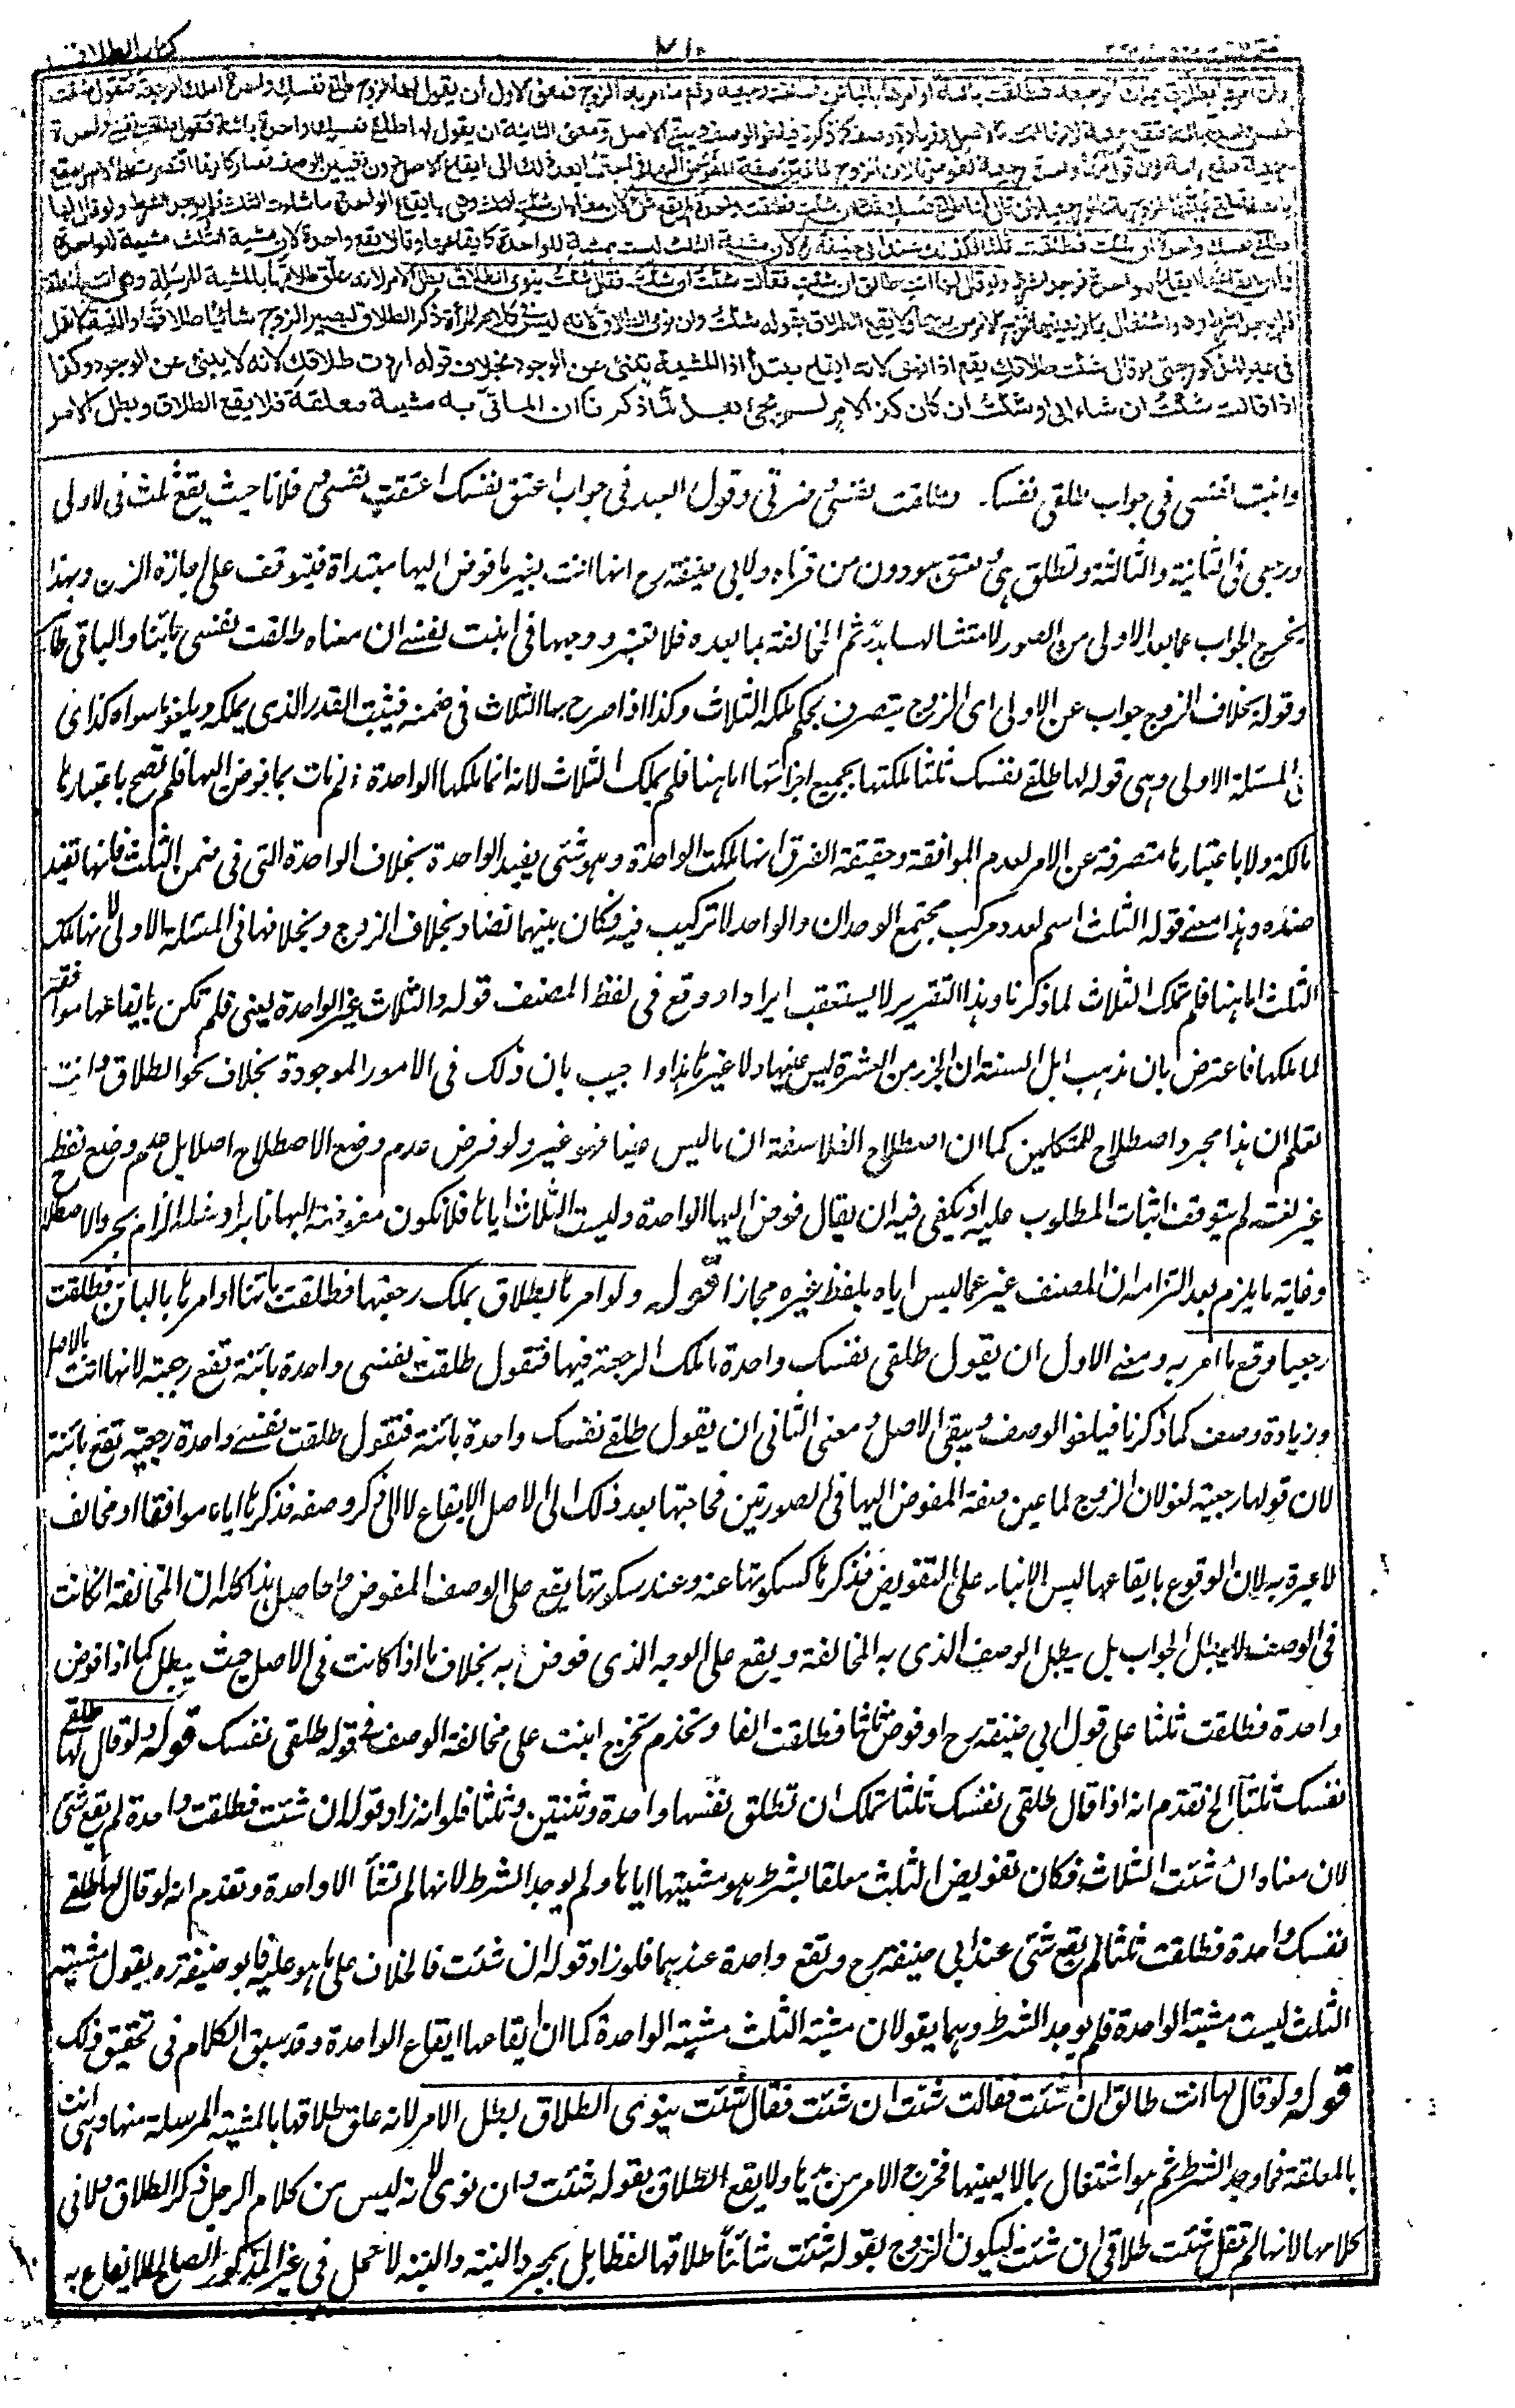 كتاب الطلاق
٧١٠
وان امرها بطلاق يملك الرجعة فطلقت بائنة او امرها بالبائن فطلقت رجعية وقع ما امر به الزوج فمعنى الاول ان يقول لها الزوج طلقي نفسك واحدة املك الرجعة فتقول طلقت
نفسي واحدة بائنة فتقع رجعية لانها اتت بالاصل وزيادة وصف كما ذكرنا فيلغو الوصف ويبقى الاصل ومعنى الثانية ان يقول لها طلقي نفسك واحدة بائنة فتقول طلقت نفسي واحدة
رجعية فتقع بائنة لان قولها واحدة رجعية لغو منها لان الزوج لما عين صفة المفوض اليها فحاجتها بعد ذلك الى ايقاع الاصل دون تعيين الوصف فصار كانها اقتصرت على الاصل فيقع
بالصفة التي عينها الزوج بائنا او رجعيا وان قال لها طلقي نفسك ثلثا ان شئت فطلقت واحدة لم يقع شئ لان معناه ان شئت الثلث وهي بايقاع الواحدة ما شاءت الثلث فلم يوجد الشرط ولو قال لها
طلقي نفسك واحدة ان شئت فطلقت ثلثا فكذلك عند ابي حنيفة رح لان مشية الثلث ليست بمشية للواحدة كايقاعها وقالا تقع واحدة لان مشية الثلث مشية للواحدة
كما ان ايقاعها ايقاع للواحدة فوجد الشرط ولو قال لها انت طالق ان شئت فقالت شئت ان شئت فقال شئت ينوي الطلاق بطل الامر لانه علق طلاقها بالمشية المرسلة وهي اتت بالمعلقة
فلم يوجد الشرط وهو اشتغال بما لا يعنيها فخرج الامر من يدها ولا يقع الطلاق بقوله شئت وان نوى الطلاق لانه ليس في كلام المرأة ذكر الطلاق ليصير الزوج شائيا طلاقها والنية لا تعمل
في غير المذكور حتى لو قال شئت طلاقك يقع اذا نوى لانه ايقاع مبتدأ اذ المشية تنبئ عن الوجود بخلاف قوله اردت طلاقك لانه لا ينبئ عن الوجود وكذا
اذا قالت شئت ان شاء ابي او شئت ان كان كذا لامر لم يجئ بعد لما ذكرنا ان الماتي به مشية معلقة فلا يقع الطلاق وبطل الامر
وابنت نفسي في جواب طلقي نفسك وطلقت نفسي وضرتي وقول العبد في جواب اعتق نفسك اعتقت نفسي وفلانا حيث يقع ثلث في الاولى
ورجعي في الثانية والثالثة وتطلق هي ويعتق هو دون من قرناه ولابي حنيفة رح انها اتت بغير ما فوض اليها مبتداة فيتوقف على اجازة الزوج وبهذا
يخرج الجواب عما بعد الاولى من الصور لامتثالها بدءا ثم المخالفة بما بعده فلا تعتبر ووجهها في ابنت نفسي ان معناه طلقت نفسي بائنا والباقي ظاهر
وقوله بخلاف الزوج جواب عن الاولى اي الزوج يتصرف بحكم ملكه الثلاث وكذا اذا صرح بها الثلاث في ضمنه فيثبت القدر الذي يملكه ويلغو ما سواه كذا هي
في المسئلة الاولى وهي قوله لها طلقي نفسك ثلثا ملكتها بجميع اجزائها اما هنا فلم يملك الثلاث لانه انما ملكها الواحدة ولم تات بما فوض اليها فلم تصح باعتبارها
مالكة ولا باعتبارها متصرفة عن الامر لعدم الموافقة وحقيقة الفرق انها ملكت الواحدة وهو شئ يفيد الواحدة بخلاف الواحدة التي في ضمن الثلث فانها تفيد
ضده وهذا معنى قوله الثلث اسم لعدد مركب مجتمع الوحدان والواحد لا تركيب فيه فكان بينهما تضاد بخلاف الزوج وبخلافها في المسئلة الاولى لانها ملكت
الثلث اما هنا فلم تملك الثلاث لما ذكرنا وهذا التقرير لا يستعقب ايرادا ووقع في لفظ المصنف قوله والثلاث غير الواحدة يعني فلم تكن بايقاعها موافقة
لما ملكها فاعترض بان مذهب اهل السنة ان الجزء من العشرة ليس عينها ولا غيرها واجيب بان ذلك في الامور الموجودة بخلاف نحو الطلاق وانت
تعلم ان هذا مجرد اصطلاح للمتكلمين كما ان اصطلاح الفلاسفة ان ما ليس عينا فهو غير ولو فرض عدم وضع الاصطلاح اصلا بل عدم وضع لفظ
غير لغة لم يتوقف اثبات المطلوب عليه اذ يكفي فيه ان يقال فوض اليها الواحدة وليست الثلاث اياها فلا تكون مفوضة اليها فايراد مثله الزام بمجرد الاصطلاح
وغايته ما يلزم بعد التزامه ان المصنف عبر عما ليس اياه بلفظ غيره مجازا قوله ولو امرها بطلاق يملك رجعتها فطلقت بائنا او امرها بالبائن فطلقت
رجعيا وقع ما امر به ومعنى الاول ان يقول طلقي نفسك واحدة املك الرجعة فيها فتقول طلقت نفسي واحدة بائنة تقع رجعية لانها اتت بالاصل
وزيادة وصف كما ذكرنا فيلغو الوصف ويبقى الاصل ومعنى الثاني ان يقول طلقي نفسك واحدة بائنة فتقول طلقت نفسي واحدة رجعية تقع بائنة
لان قولها رجعية لغو لان الزوج لما عين صفة المفوض اليها في الصورتين فحاجتها بعد ذلك الى الاصل الايقاع لا الى ذكر وصفه فذكرها اياه موافقا او مخالفا
لا عبرة به لان الوقوع بايقاعها ليس الا بناء على التفويض فذكرها كسكوتها عنه وعند سكوتها يقع على الوصف المفوض وحاصل هذا كله ان المخالفة ان كانت
في الوصف لا يبطل الجواب بل يبطل الوصف الذي به المخالفة ويقع على الوجه الذي فوض به بخلاف ما اذا كانت في الاصل حيث يبطل كما اذا فوض
واحدة فطلقت ثلثا على قول ابي حنيفة رح او فوض ثلثا فطلقت الفا وتقدم تخريج ابنت على مخالفة الوصف في قوله طلقي نفسك قوله ولو قال لها طلقي
نفسك ثلثا الخ تقدم انه اذا قال طلقي نفسك ثلثا تملك ان تطلق نفسها واحدة وثنتين وثلثا فلو انه زاد قوله ان شئت فطلقت واحدة لم يقع شئ
لان معناه ان شئت الثلاث فكان تفويض الثلث معلقا بشرط هو مشيتها اياها ولم يوجد الشرط لانها لم تشأ الا واحدة وتقدم انه لو قال لها طلقي
نفسك واحدة فطلقت ثلثا لم يقع شئ عند ابي حنيفة رح وتقع واحدة عندهما فلو زاد قوله ان شئت فالخلاف على ما هو عليه فابو حنيفة ره يقول مشية
الثلث ليست مشية الواحدة فلم يوجد الشرط وهما يقولان مشية الثلث مشية الواحدة كما ان ايقاعها ايقاع الواحدة وقد سبق الكلام في تحقيق ذلك
قوله ولو قال لها انت طالق ان شئت فقالت شئت ان شئت فقال شئت ينوي الطلاق بطل الامر لانه علق طلاقها بالمشية المرسلة منها وهي اتت
بالمعلقة فما وجد الشرط ثم هو اشتغال بما لا يعنيها فخرج الامر من يدها ولا يقع الطلاق بقوله شئت وان نوى لانه ليس من كلام الرجل ذكر الطلاق ولا في
كلامها لانها لم تقل شئت طلاقي ان شئت ليكون الزوج بقوله شئت شائيا طلاقها لفظا بل بمجرد النية والنية لا تعمل في غير المذكور الصالح للايقاع به